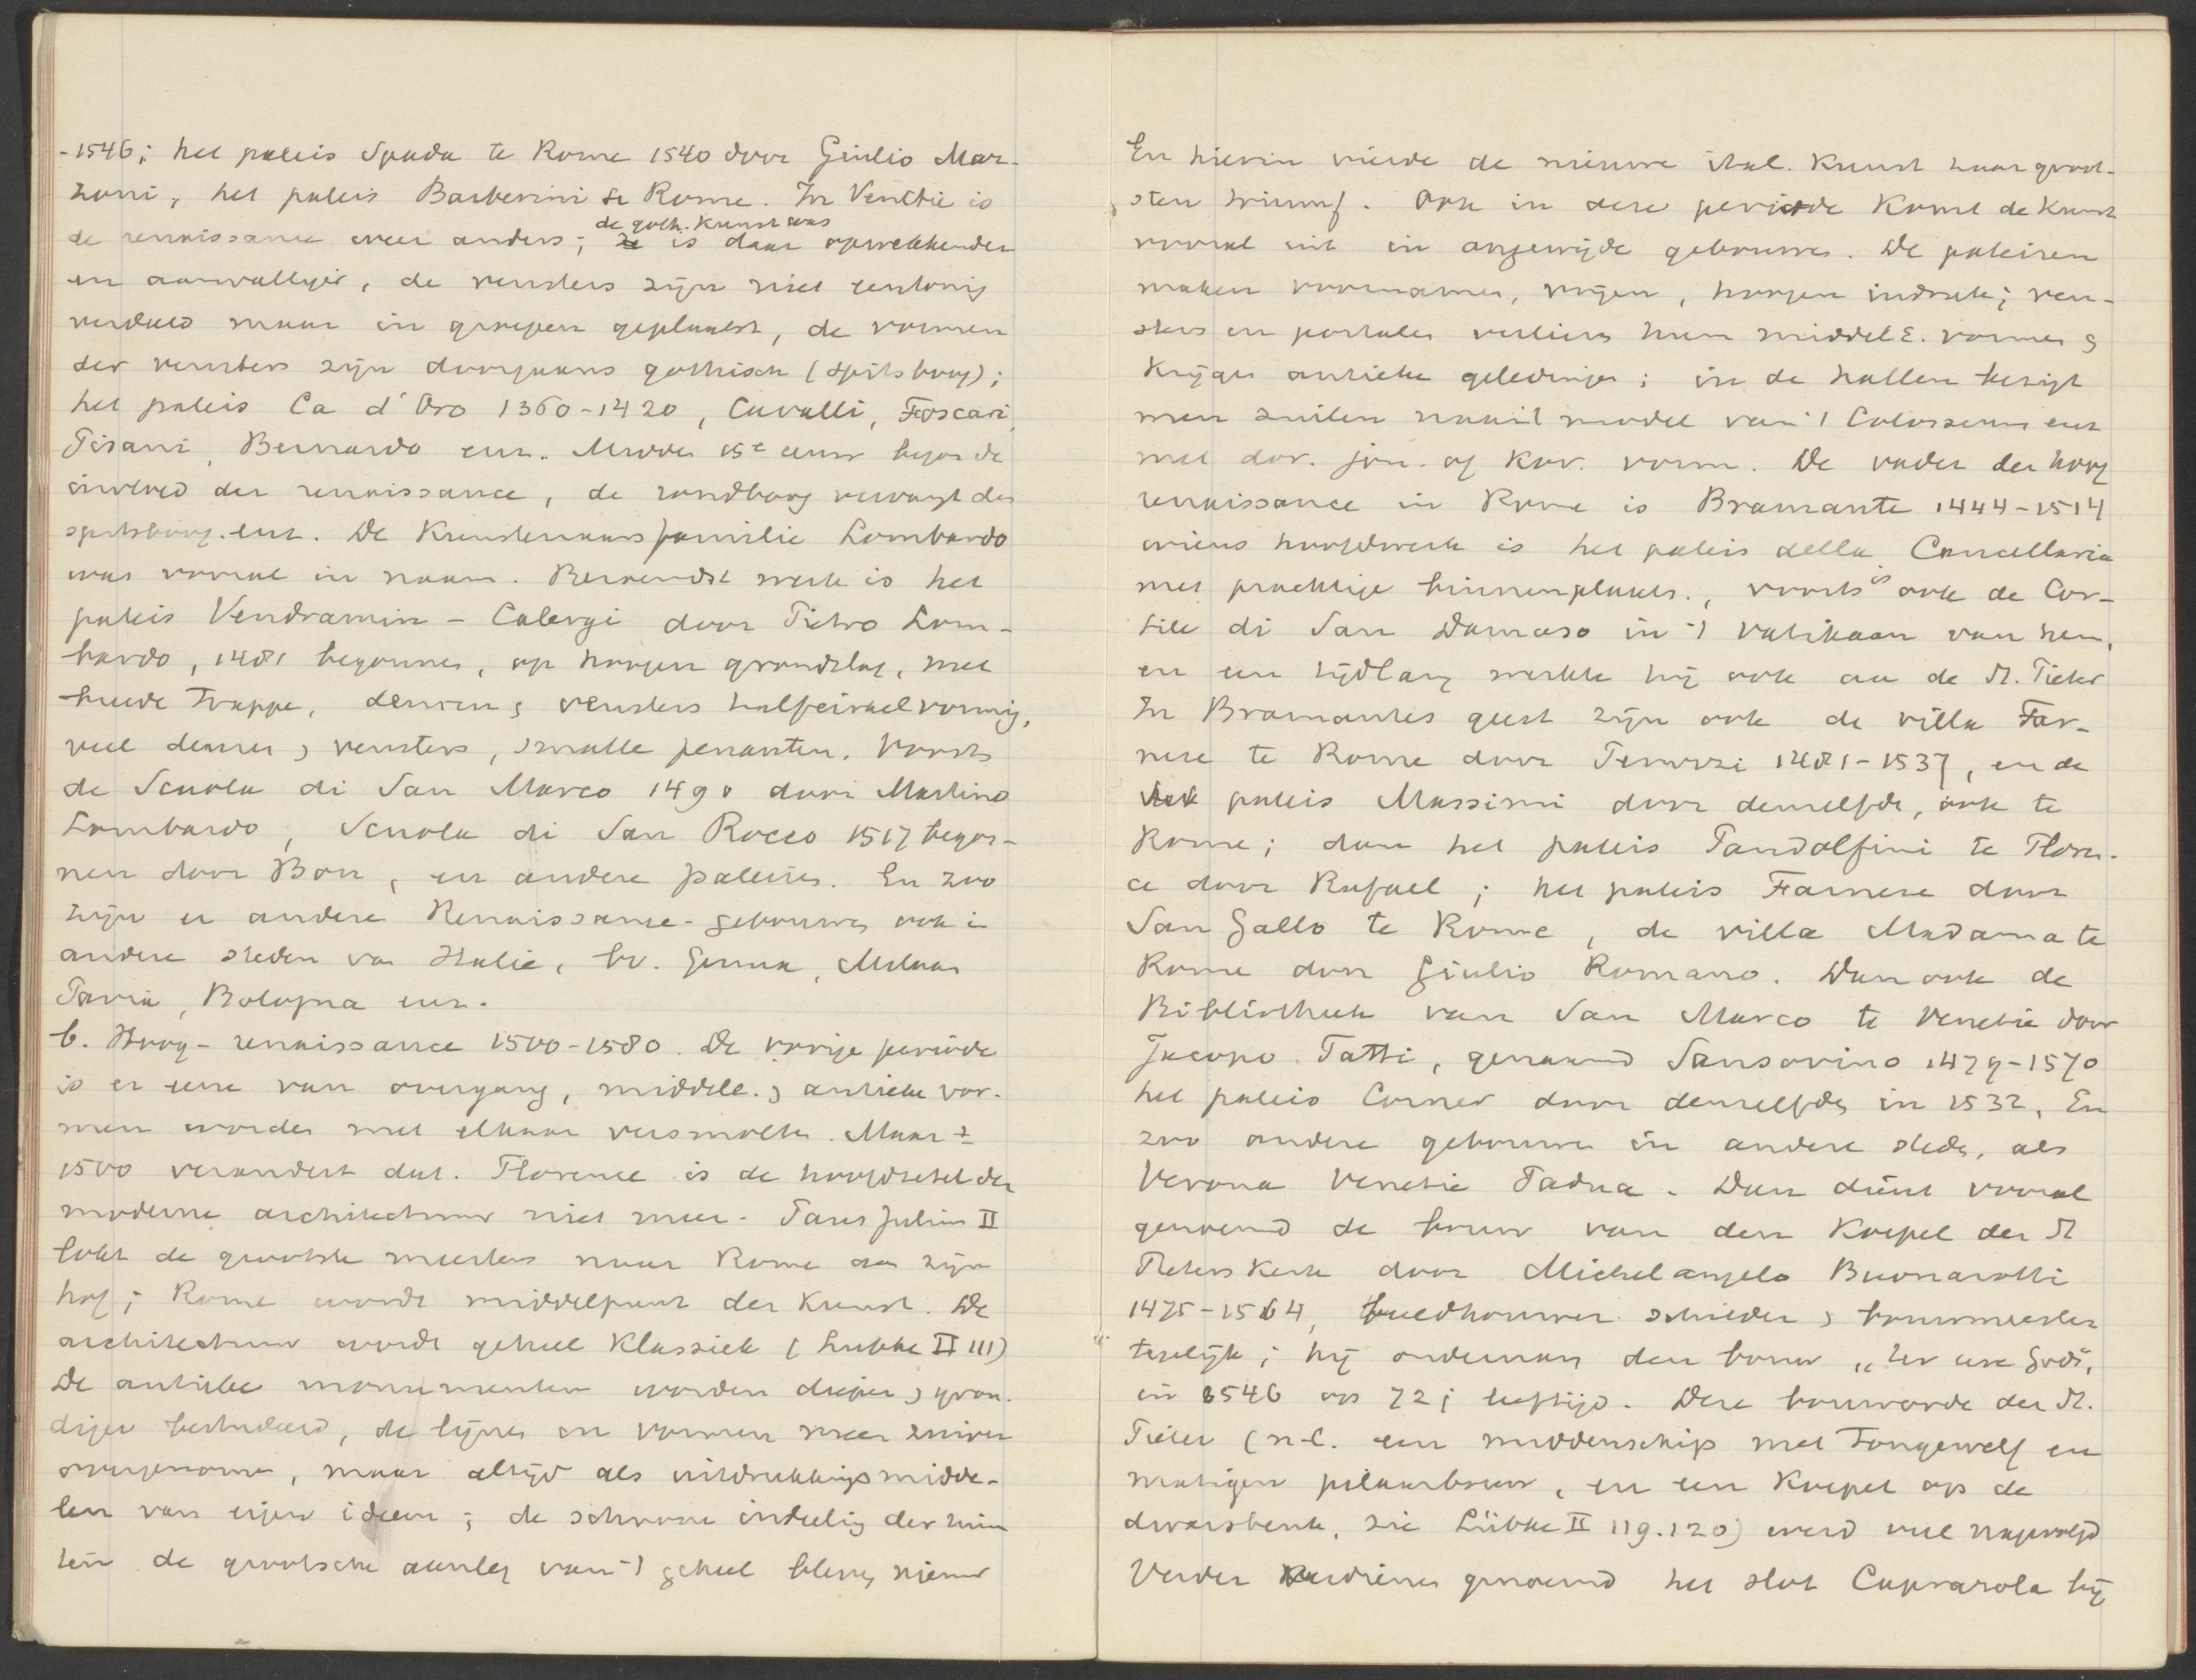 -1546; het paleis Spada te Rome 1540 door Giulio Mar-
zoni, het paleis Barberini te Rome. In Venetie is
de goth. kunst was
de renaissance weer anders; is daar opwekkender
en aanvalliger, de vensters zijn niet eentonig
verdeeld maar in groepen geplaatst, de vormen
der vensters zijn doorgaans gothisch (spitsboog);
het paleis Ca d'Oro 1360-1420, Cavalli, Foscari,
Pisani, Bernardo enz. Midden 15e eeuw begon de
invloed der renaissance, de rondboog vervangt den
spitsboog. enz. De Kunstenaarsfamilie Lombardo
was vooral in naam. Beroemdst werk is het
paleis Vendramin - Calergi door Pietro Lom-
bardo, 1481 begonnen, op hoogen grondslag, met
breede trappe, deuren en vensters halfcirkelvormig,
veel deuren en vensters, smalle penanten. Voorts
de Scuola di San Marco 1490 door Martino
Lombardo, Scuola di San Rocco 1517 begon-
nen door Bon, en andere paleizen. En zoo
zijn er andere Renaissance-gebouwen ook in
andere steden van Italie, bv. Genua, Milaan
Pavia, Bologna enz.
b. Hoog-renaissance 1500-1580. De vorige periode
is er eene van overgang, middele. en antieke vor-
men worden met elkaar versmolten. Maar ±
1500 verandert dat. Florence is de hoofdzetel der
moderne architectuur niet meer. Paus Julius II
lokt de grootste meesters naar Rome aan zijn
hof; Rome wordt middelpunt der Kunst. De
architectuur wordt geheel Klassiek (Lubke II 111)
De antieke monumenten worden dieper en gron-
diger bestudeerd, de lijnen en vormen meer zuiver
overgenomen, maar altijd als uitdrukkingsmidde-
len van eigen ideeen; de schoone indeeling der ruim
ten de grootsche aanleg van 't geheel bleven nieuw
En hierin vierde de nieuwe ital. Kunst haar groot-
sten triumf. Ook in deze periode komt de Kunst
vooral uit in ongewijde gebouwen. De paleizen
maken voornamen, vrijen, hoogen indruk; ven-
sters en portalen verliezen hun middelE. vormen en
krijgen antieke geledingen; in de hallen bezigt
men zuilen naar 't model van 't Colosseum enz
met dor. jon. of kor. vorm. De vader der hoog
renaissance in Rome is Bramante 1444-1514
wiens hoofdwerk is het paleis della Cancellaria
met prachtige binnenplaats., voorts is ook de Cor-
tile di San Damaso in 't Vatikaan van hem,
en een tijdlang werkte hij ook aan de St. Pieter
In Bramantes geest zijn ook de villa Far-
nese te Rome door Peruzzi 1481-1537, en de
paleis Massimi door denzelfde, ook te
Rome; dan het paleis Pandolfini te Floren-
ce door Rafael; het paleis Farnese door
San Gallo te Rome, de villa Madama te
Rome door Giulio Romano. Dan ook de
Bibliotheek van San Marco te Venetie door
Jacopo Tatti, genaamd Sansovino 1479-1570
het paleis Corner door denzelfden in 1532, En
zoo andere gebouwen in andere steden, als
Verona Venetie Padua. Dan dient vooral
genoemd de bouw van den Koepel der St
Pieterskerk door Michelangelo Buonarotti
1475-1564, beeldhouwer schilder en bouwmeester
tegelijk; hij ondernam den bouw „ter eere Gods",
in 1546 op 72 j leeftijd. Deze bouworde der St.
Pieter (n.l. een middenschip met Tongewelf en
matigen pilaarbouw, en een Koepel op de
dwarsbeuk, zie Lübke II 119.120) werd veel nagevolgd
Verder verdienen genoemd het slot Caprarola bij